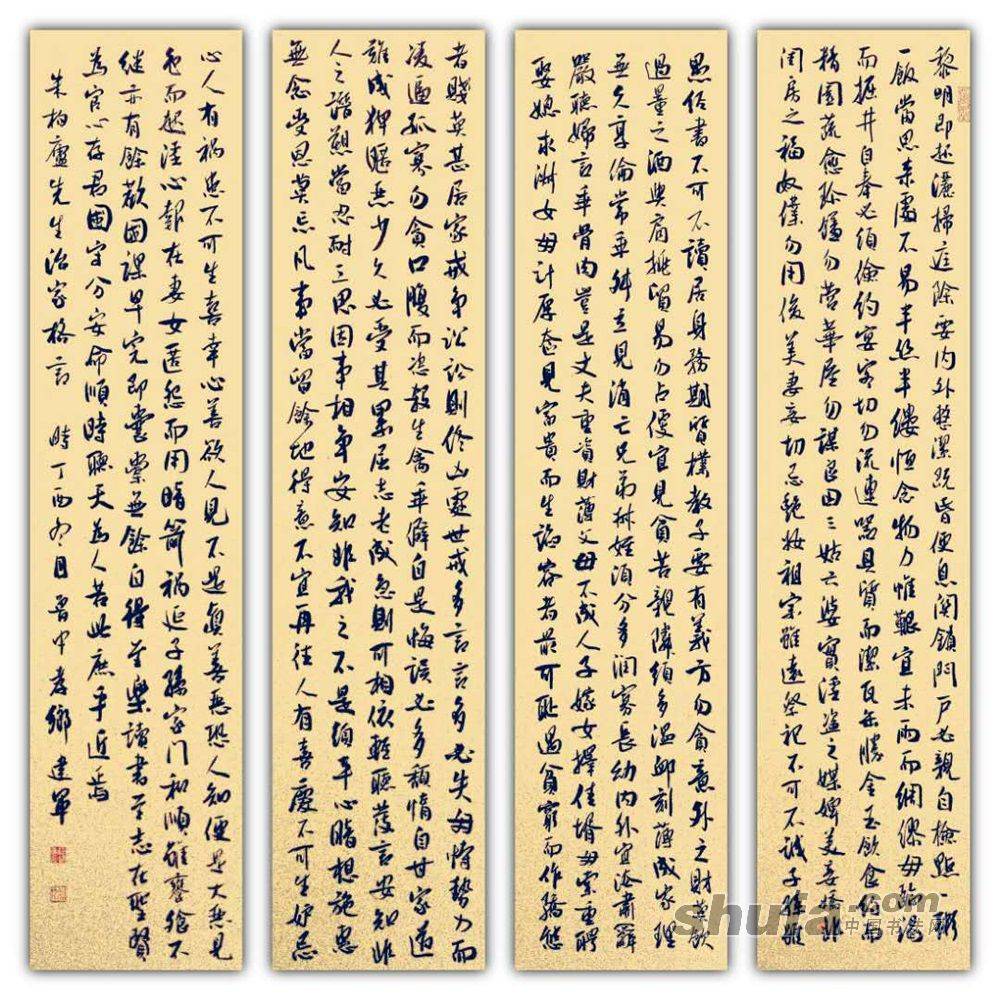 黎明即起灑掃庭除要內外整潔既昏便息關鎖門戶必親自檢點一粥
一飯當思來處不易半絲半縷恆念物力惟艱宜未雨而綢繆毋臨渴
而掘井自奉必須儉約宴客切勿流連器具質而潔瓦缶勝金玉飲食約而
精園蔬愈珍饈勿營華屋勿謀良田三姑六婆實淫盜之媒婢美妾嬌非
閨房之福奴僕勿用俊美妻妾切忌艷妝祖宗雖遠祭祀不可不誠子孫雖
愚經書不可不讀居身務期質樸教子要有義方勿貪意外之財莫飲
過量之酒與肩挑貿易勿占便宜見貧苦親隣須多溫卹刻薄成家理
無久享倫常乖舛立見消亡兄弟叔姪須分多潤寡長幼內外宜法肅辭
嚴聽婦言乖骨肉豈是丈夫重資財薄父母不成人子嫁女擇佳壻毋索重聘
娶媳求淑女毋計厚奩見富貴而生諂容者最可恥遇貧窮而作驕態
者賤莫甚居家戒爭訟訟則終凶處世戒多言言多必失毋恃勢力而
凌逼孤寡勿貪口腹而恣殺生禽乖僻自是悔誤必多頹惰自甘家道
難成狎暱惡少久必受其累屈志老成急則可相依輕聽發言安知非
人之譖愬當忍耐三思因事相爭安知非我之不是須平心暗想施惠
無念受恩莫忘凡事當留餘地得意不宜再往人有喜慶不可生妒忌
心人有禍患不可生喜幸心善欲人見不是真善惡恐人知便是大惡見
色而起淫心報在妻女匿怨而用暗箭禍延子孫家門和順雖饔飧不
繼亦有餘歡國課早完即囊橐無餘自得至樂讀書志在聖賢
為官心存君國守分安命順時聽天為人若此庶乎近焉
朱柏廬先生治家格言 時丁酉冬月魯中孝鄉建軍
shufa.com
中国书法网